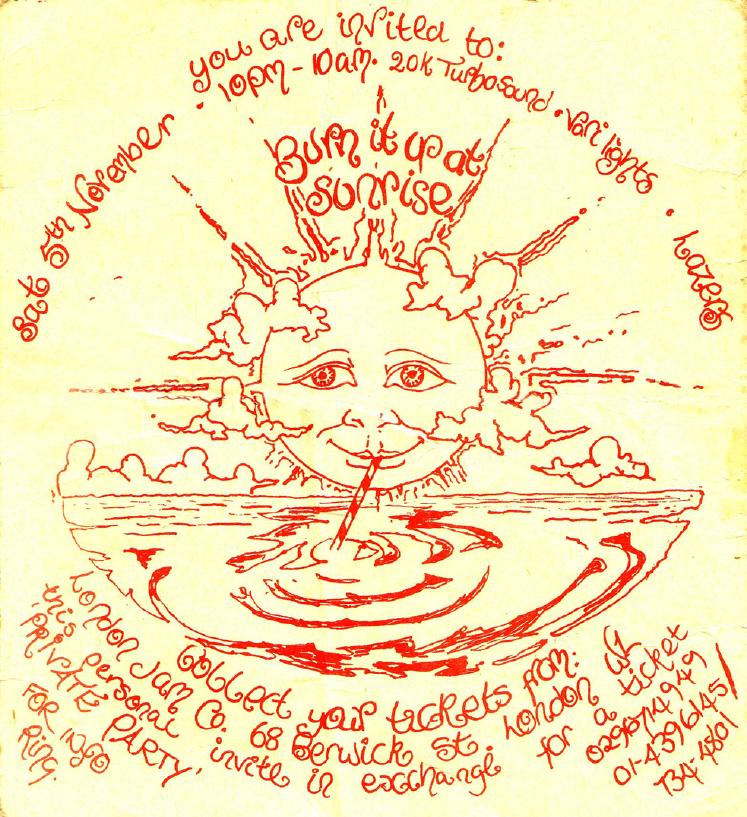 you are invited to:
Sat 5th November · 10pm - 10am · 20K Turbosound · Vari lights · Lazers
Burn it up at
Sunrise
Collect your tickets from:
London Jam Co. 68 Berwick St. London W1
this personal invite in exchange for a ticket
'PRIVATE PARTY'
FOR INFO
Ring.
01-4396145/
734-4801